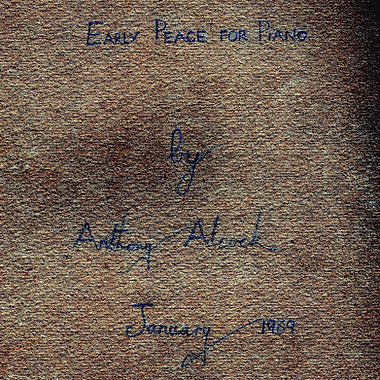 EARLY PEACE FOR PIANO
by
Anthony Alcock
January 1969